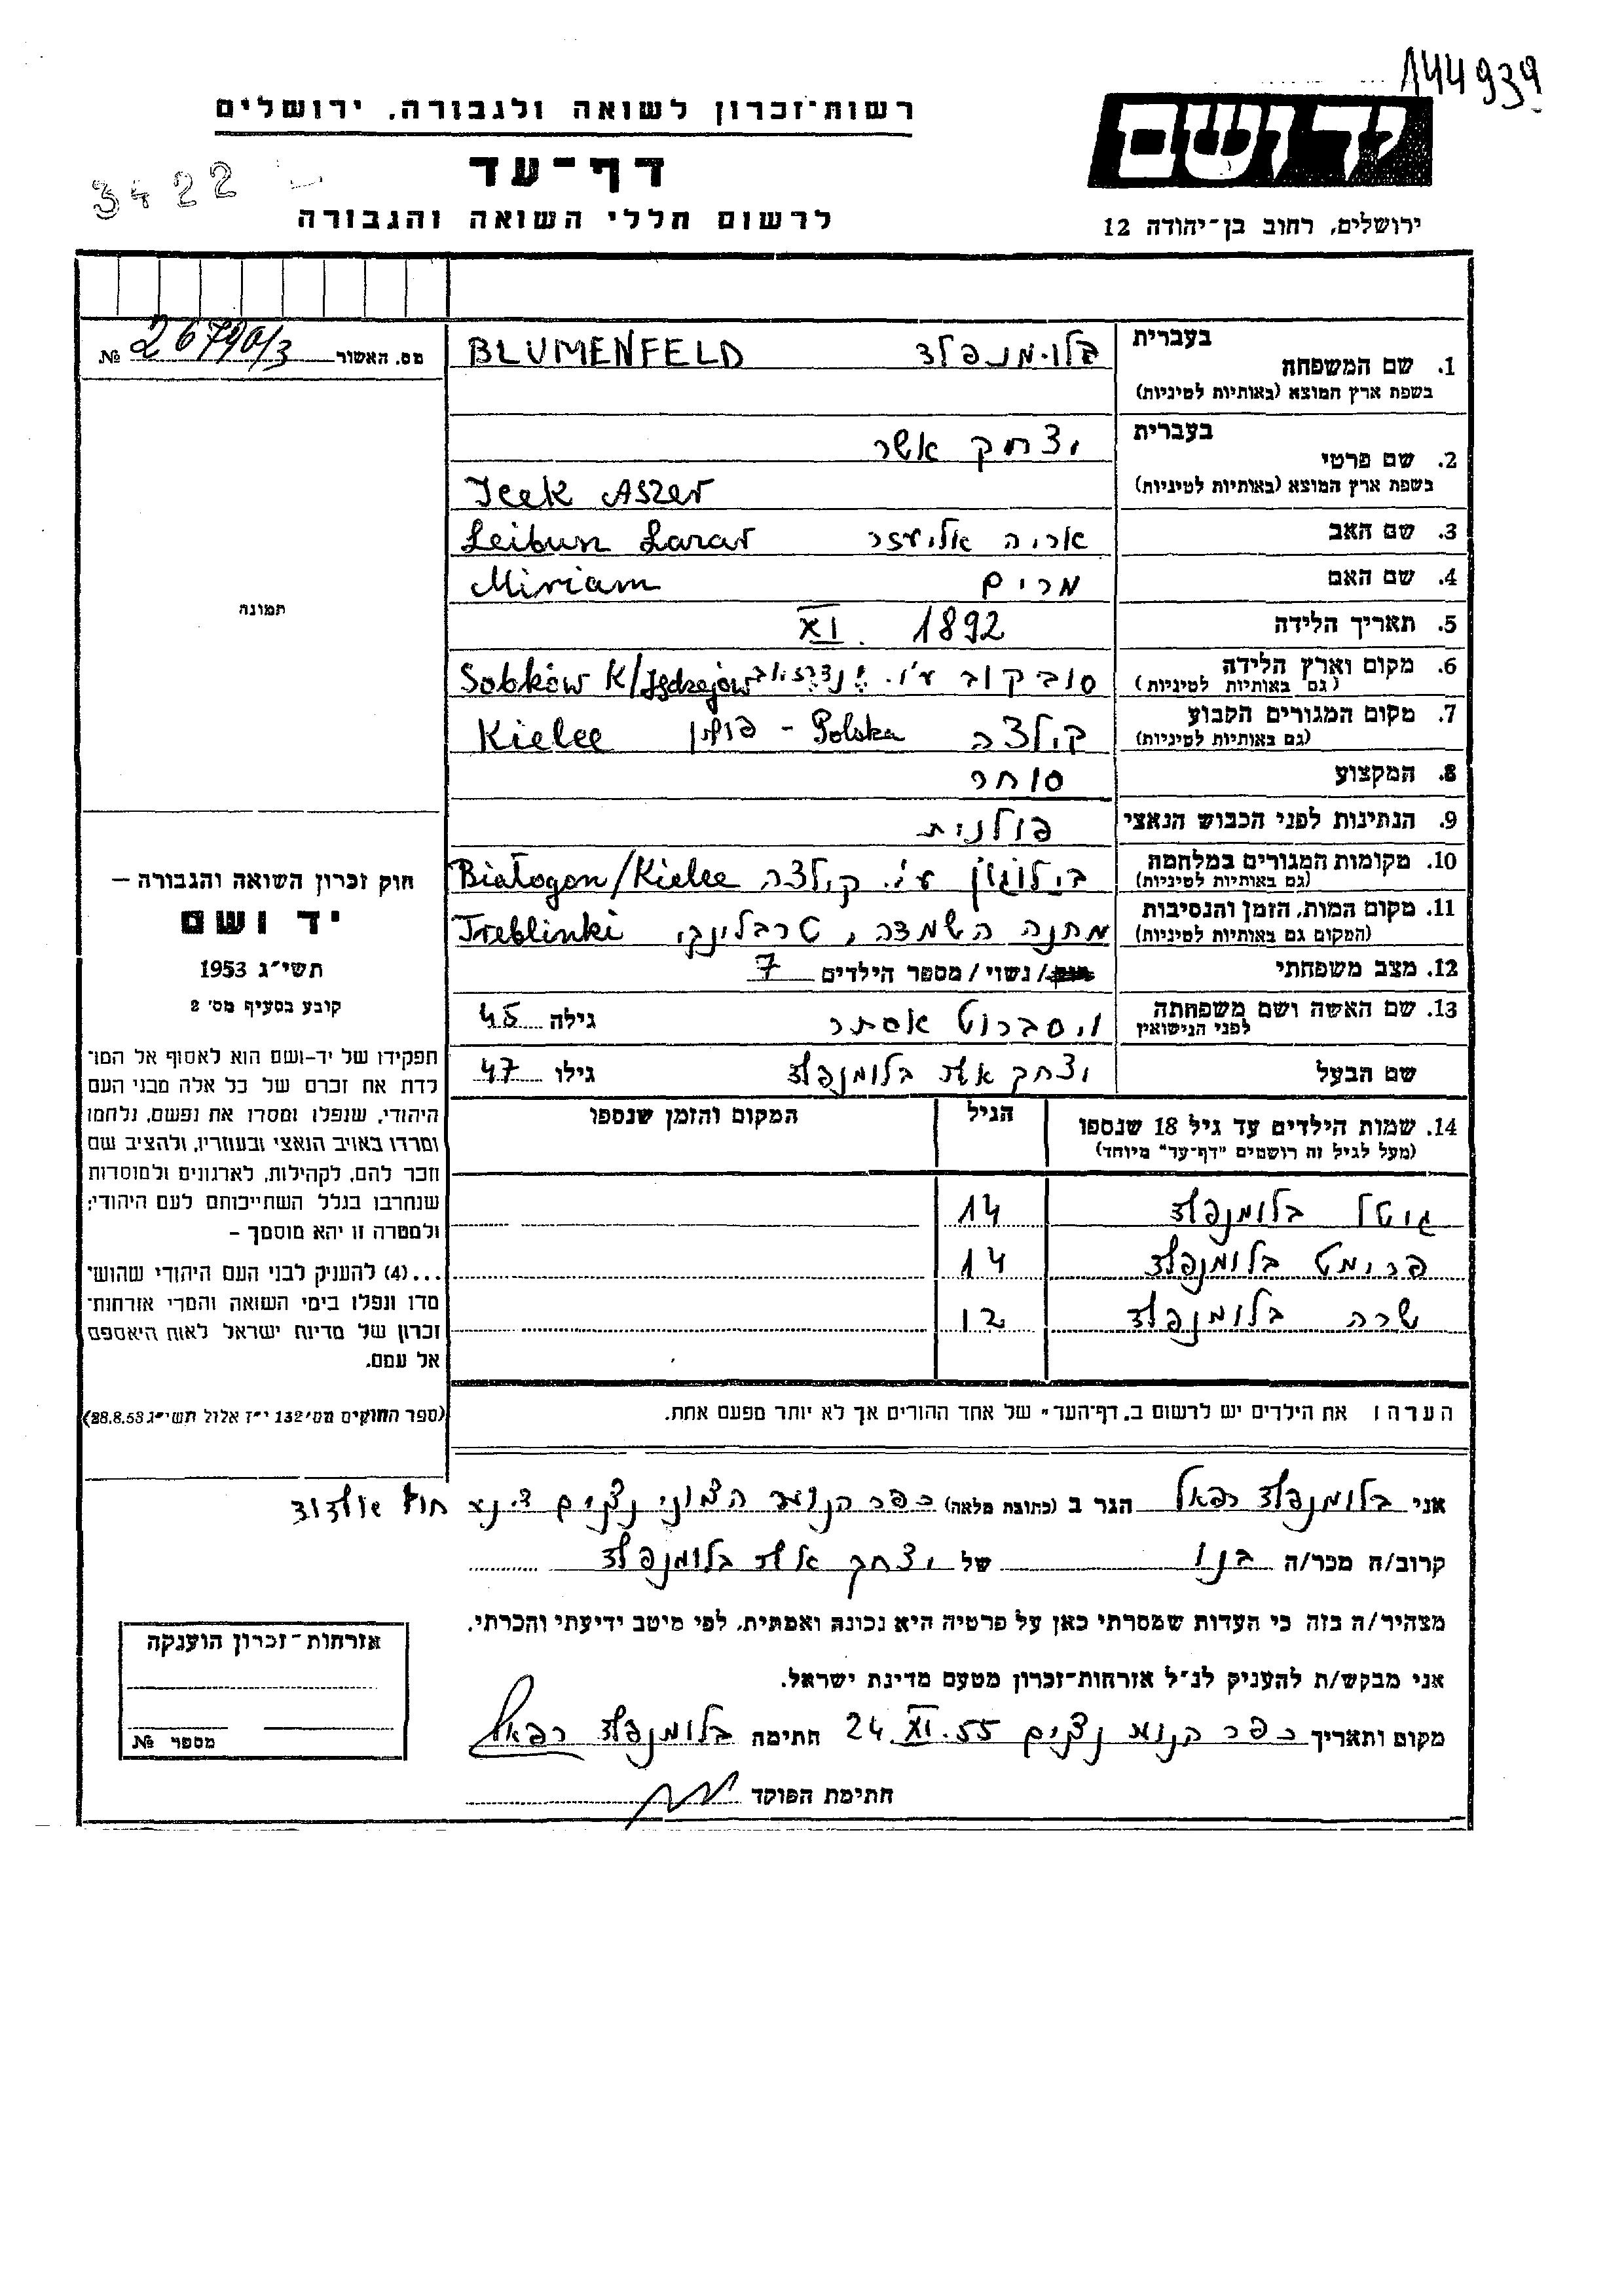 144939
יד ושם
ירושלים, רחוב בן-יהודה 12
רשות-זכרון לשואה ולגבורה, ירושלים
דף-עד
לרשום חללי השואה והגבורה
3422
מס. האשור 26790/3 №
תמונה
חוק זכרון השואה והגבורה —
יד ושם
תשי״ג 1953
קובע בסעיף מס׳ 2
תפקידו של יד-ושם הוא לאסוף אל המו־
לדת את זכרם של כל אלה מבני העם
היהודי, שנפלו ומסרו את נפשם, נלחמו
ומרדו באויב הנאצי ובעוזריו, ולהציב שם
וזכר להם, לקהילות, לארגונים ולמוסדות
שנחרבו בגלל השתייכותם לעם היהודי;
ולמטרה זו יהא מוסמך –
...(4) להעניק לבני העם היהודי שהוש־
מדו ונפלו בימי השואה והמרי אזרחות־
זכרון של מדינת ישראל לאות היאספם
אל עמם.
(ספר החוקים מס׳ 132 י״ז אלול תשי״ג 28.8.53)
בעברית
1. שם המשפחה בלומנפלד BLUMENFELD
בשפת ארץ המוצא (באותיות לטיניות)
בעברית יצחק אשר
2. שם פרטי
בשפת ארץ המוצא (באותיות לטיניות) Icek Aszer
3. שם האב אריה אליעזר Leibun Lazar
4. שם האם מרים Miriam
5. תאריך הלידה 1892 XI.
6. מקום וארץ הלידה סובקוב ע׳׳י. ינדז׳אוב Sobków K/Jędrzejów
(גם באותיות לטיניות)
7. מקום המגורים הקבוע קילצה Polska - פולין Kielce
(גם באותיות לטיניות)
8. המקצוע סוחר
9. הנתינות לפני הכבוש הנאצי פולנית
10. מקומות המגורים במלחמה בילוגון ע׳׳י. קילצה Białogon/Kielce
(גם באותיות לטיניות)
11. מקום המות, הזמן והנסיבות מחנה השמדה, טרבלינקי Treblinki
(המקום גם באותיות לטיניות)
12. מצב משפחתי / נשוי / מספר הילדים 7
13. שם האשה ושם משפחתה ויסברוט אסתר גילה 45
לפני הנישואין
שם הבעל יצחק אשר בלומנפלד גילו 47
14. שמות הילדים עד גיל 18 שנספו הגיל המקום והזמן שנספו
(מעל לגיל זה רושמים ״דף-עד״ מיוחד)
גיטל בלומנפלד 14
פרומט בלומנפלד 14
שרה בלומנפלד 12
הערה: את הילדים יש לרשום ב„דף-העד״ של אחד ההורים אך לא יותר מפעם אחת.
אני בלומנפלד רפאל הגר ב (כתובת מלאה) כפר הנוער הציוני נצנים ד.נ. חוף אשדוד
קרוב/ה מכר/ה בנו של יצחק אשר בלומנפלד
מצהיר/ה בזה כי העדות שמסרתי כאן על פרטיה היא נכונה ואמתית, לפי מיטב ידיעתי והכרתי.
אני מבקש/ת להעניק לנ״ל אזרחות-זכרון מטעם מדינת ישראל.
מקום ותאריך כפר הנוער נצנים 24.XI.55 חתימה בלומנפלד רפאל
חתימת הפוקד
אזרחות-זכרון הוענקה
מספר №